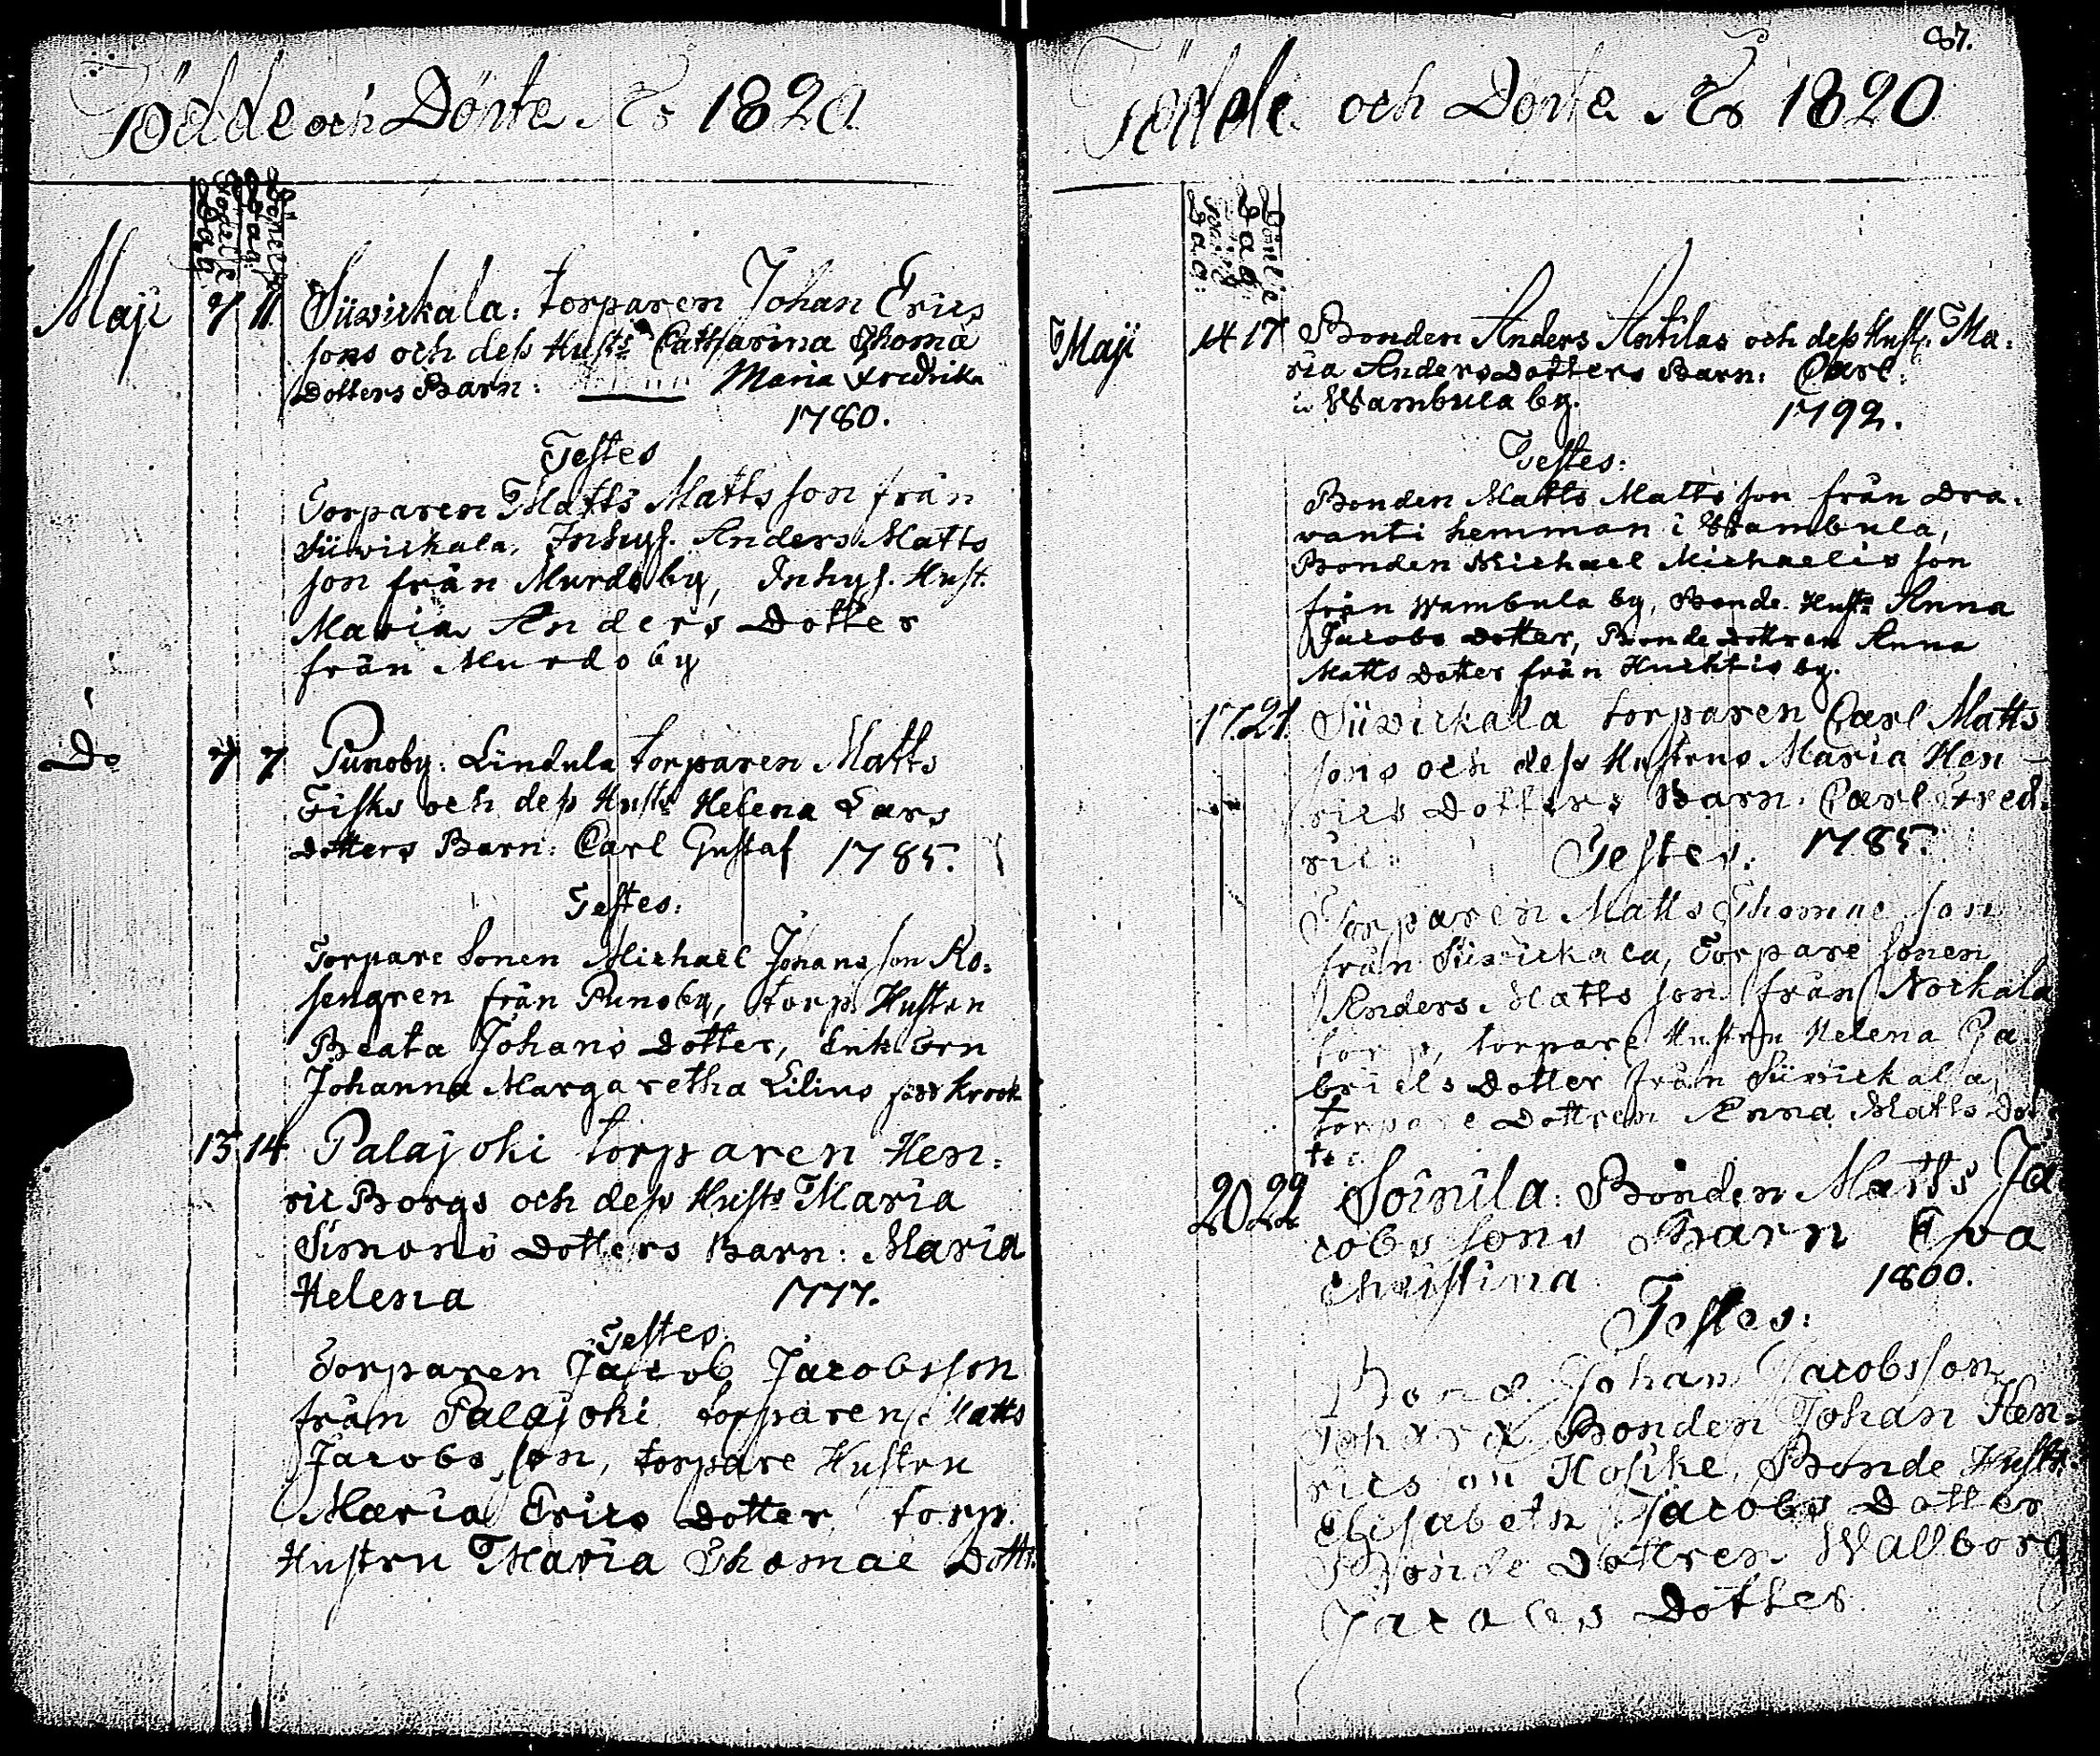 Födde och Dönte Åro 1820
Födelse Dag
Dönelse Dag
Maji 7 11 Siiwickala: torparen Johan Erics
sons och dess Hust: Catharina Thomæ
Dotters Barn: Maria Fredrika
1780.
Testes
Torparen Matts Mattsson från
Siiwickala, Inhys. Anders Matts
son från Murdoby, Inhys. Hust:
Maria Anders Dotter
från Murdoby
Do 7 7 Punoby: Lindula torparen Matts
Fisks och dess Hust: Helena Lars
Dotters Barn: Carl Gustaf 1785.
Testes:
Torpare Sonen Michael Johansson Ro=
sengren från Punoby, torp. Hustrun
Beata Johans Dotter, Enk Örn
Johanna Margaretha Lilius född Krook
13 14 Palajoki torparen Hen=
ric Borgs och dess Hust: Maria
Simons Dotters Barn: Maria
Helena 1777.
Testes
Torparen Jacob Jacobsson
från Palajoki torparen Matts
Jacobsson, torpare Hustru
Maria Erics Dotter, torp.
Hustru Maria Thomae Dott:
87.
Födde och Dönte Åro 1820
Maji 14 17 Bonden Anders Antilas och dess Hust: Ma=
ria Anders Dotters Barn: Carl:
i Wambula by. 1792.
Testes:
Bonden Matts Mattsson från Dra=
vanti hemman i Wambula,
Bonden Michael Michaelisson
från Wambula by, Bonde Hust: Anna
Jacobs Dotter, Bonde Dottren Anna
Matts Dotter från Huchtis by.
17 21 Siiwickala torparen Carl Matts
sons och dess Hustrus Maria Hen=
rics Dotters Barn: Carl Fred=
ric: Testes: 1785.
Torparen Matts Thomae son
från Siiwickala, Torpare Sonen
Anders Mattsson från Norkala
torp, torpare Hustru Helena Ga=
briels Dotter från Siiwickala
torpare Dottren Anna Matts Dot
ter
20 22 Soinila: Bonden Matts Ja
cobssons Barn Eva
Christina 1800.
Testes:
Bond. Johan Jacobsson
Bonden Johan Hen=
ricsson Hosike, Bonde Hust:
Elisabeth Jacobs Dotter
Bonde Dottren Wallborg
Jacobs Dotter